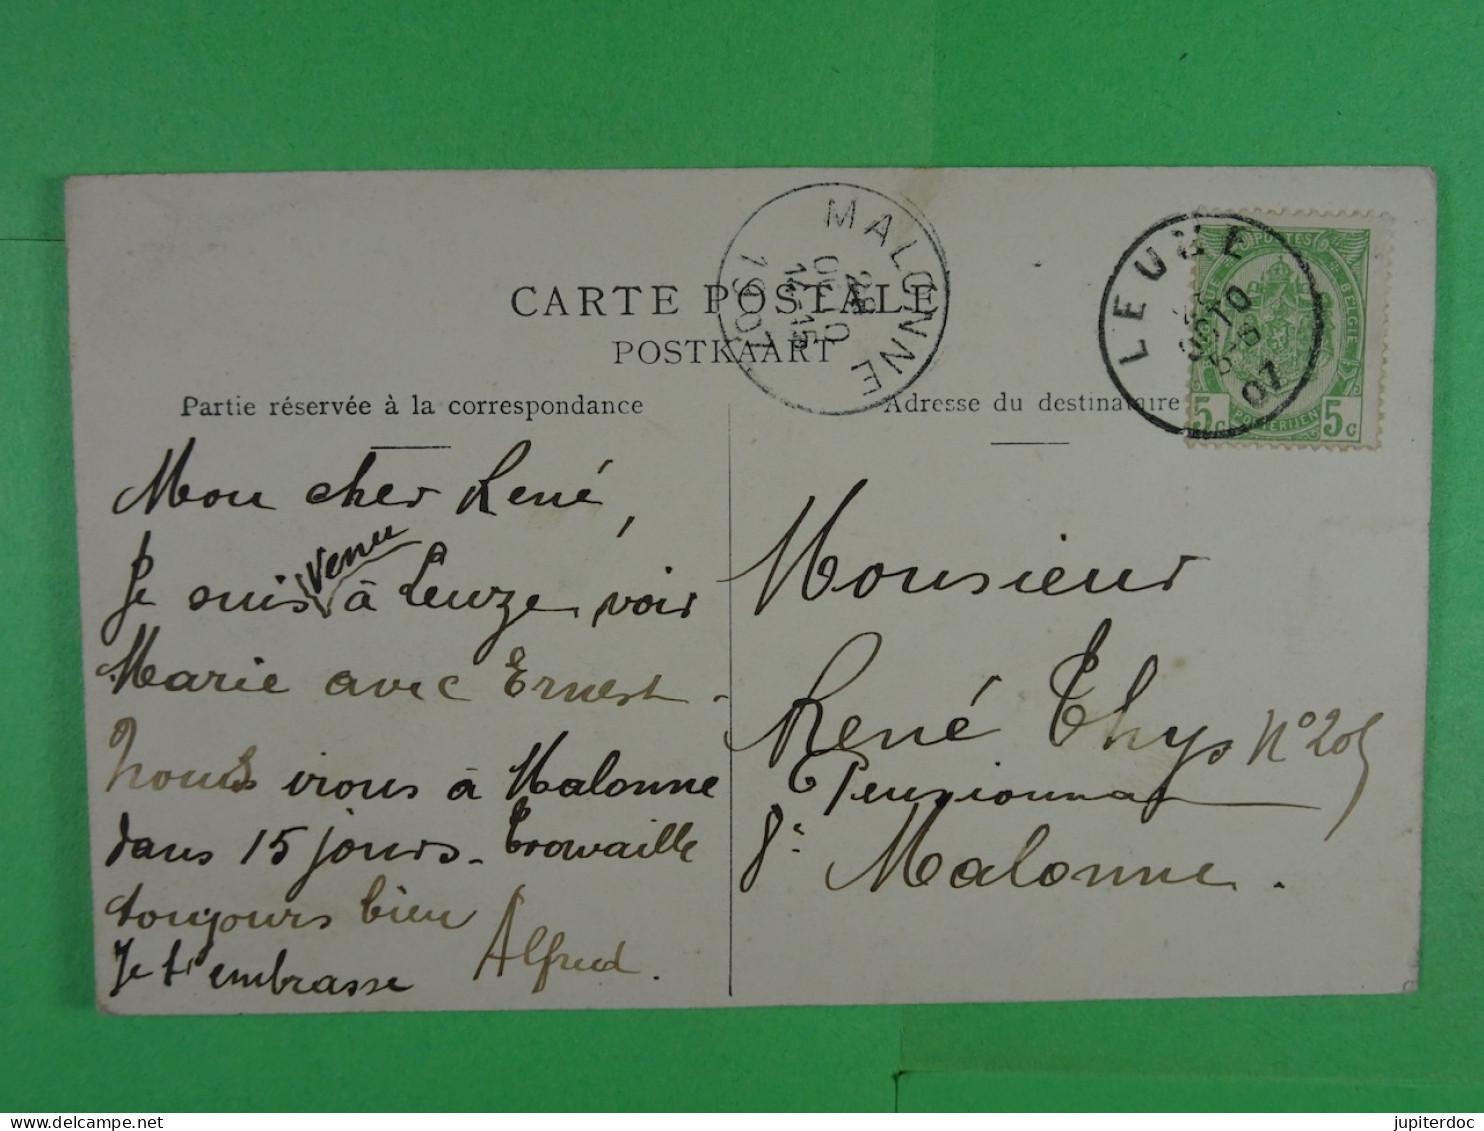 CARTE POSTALE
POSTKAART
Partie réservée à la correspondance
Adresse du destinataire
MALONNE
1907
LEUZE
10
07
POSTES
BELGIE
5c 5c
POSTERIJEN
Mon cher René,
Je suis venu à Leuze voir
Marie avec Ernest.
Nous irons à Malonne
dans 15 jours. Trowaille
toujours bien
Je t'embrasse Alfred.
Monsieur
René Thys N° 205
Pensionnat
Malonne.
jupiterdoc